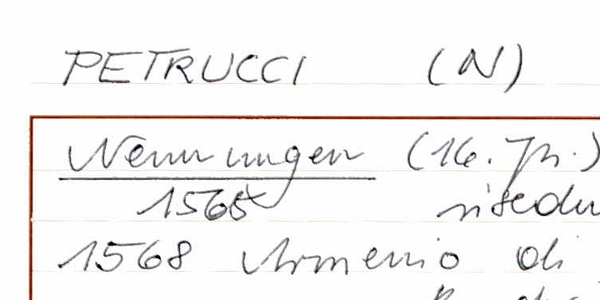 PETRUCCI (N)
Nennungen (16. Jh.)
1565
1568 Armenio di